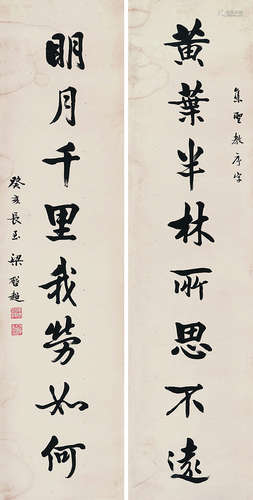 集聖教序字
黃葉半林所思不遠
明月千里我勞如何
癸亥長至 梁啟超